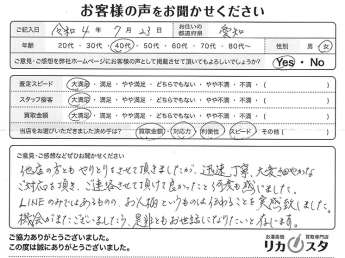 お客様の声をお聞かせください
ご記入日 令和 4 年 7 月 23 日 お住いの都道府県 愛知
年齢 20代・30代・40代・50代・60代・70代・80代〜 性別 男・女
ご意見・ご感想を弊社ホームページにお客様の声として掲載させて頂いてもよろしいでしょうか? Yes・No
査定スピード 大満足・満足・やや満足・どちらでもない・やや不満・不満・( )
スタッフ接客 大満足・満足・やや満足・どちらでもない・やや不満・不満・( )
買取金額 大満足・満足・やや満足・どちらでもない・やや不満・不満・( )
当店をお選びいただきました決め手は? 買取金額・対応力・利便性・スピード・その他( )
ご意見・ご感想などぜひお聞かせください
他店の方ともやりとりさせて頂きましたが、迅速、丁寧、大変細やかな
ご対応を頂き、ご連絡させて頂けて良かったと何度も感じました。
LINEのみではあるものの、お人柄というものは伝わることを実感致しました。
機会がまたございましたら、是非ともお世話になりたいと存じます。
ご協力ありがとうございました。
この度は誠にありがとうございました。
お酒高価 買取専門店
リカスタ